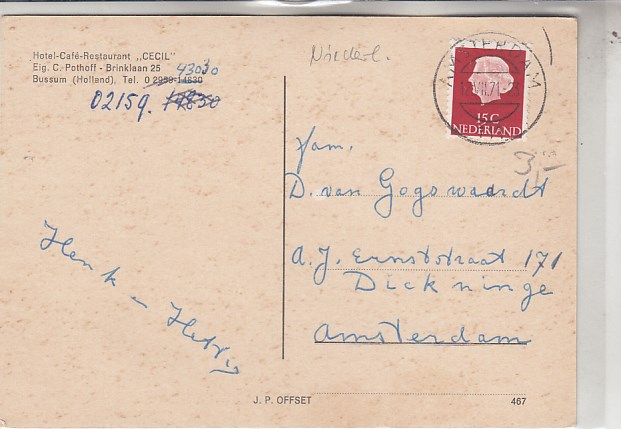 Hotel-Café-Restaurant „CECIL"
Eig. C. Pothoff - Brinklaan 25
43030
Bussum (Holland). Tel. 0 2959-14830
02159. 14830
Henk en Hetty
J. P. OFFSET
467
15 C
NEDERLAND
VII.71
3,-
Fam.
D. van Gogowaardt
A. J. Ernststraat 171
Dickninge
Amsterdam